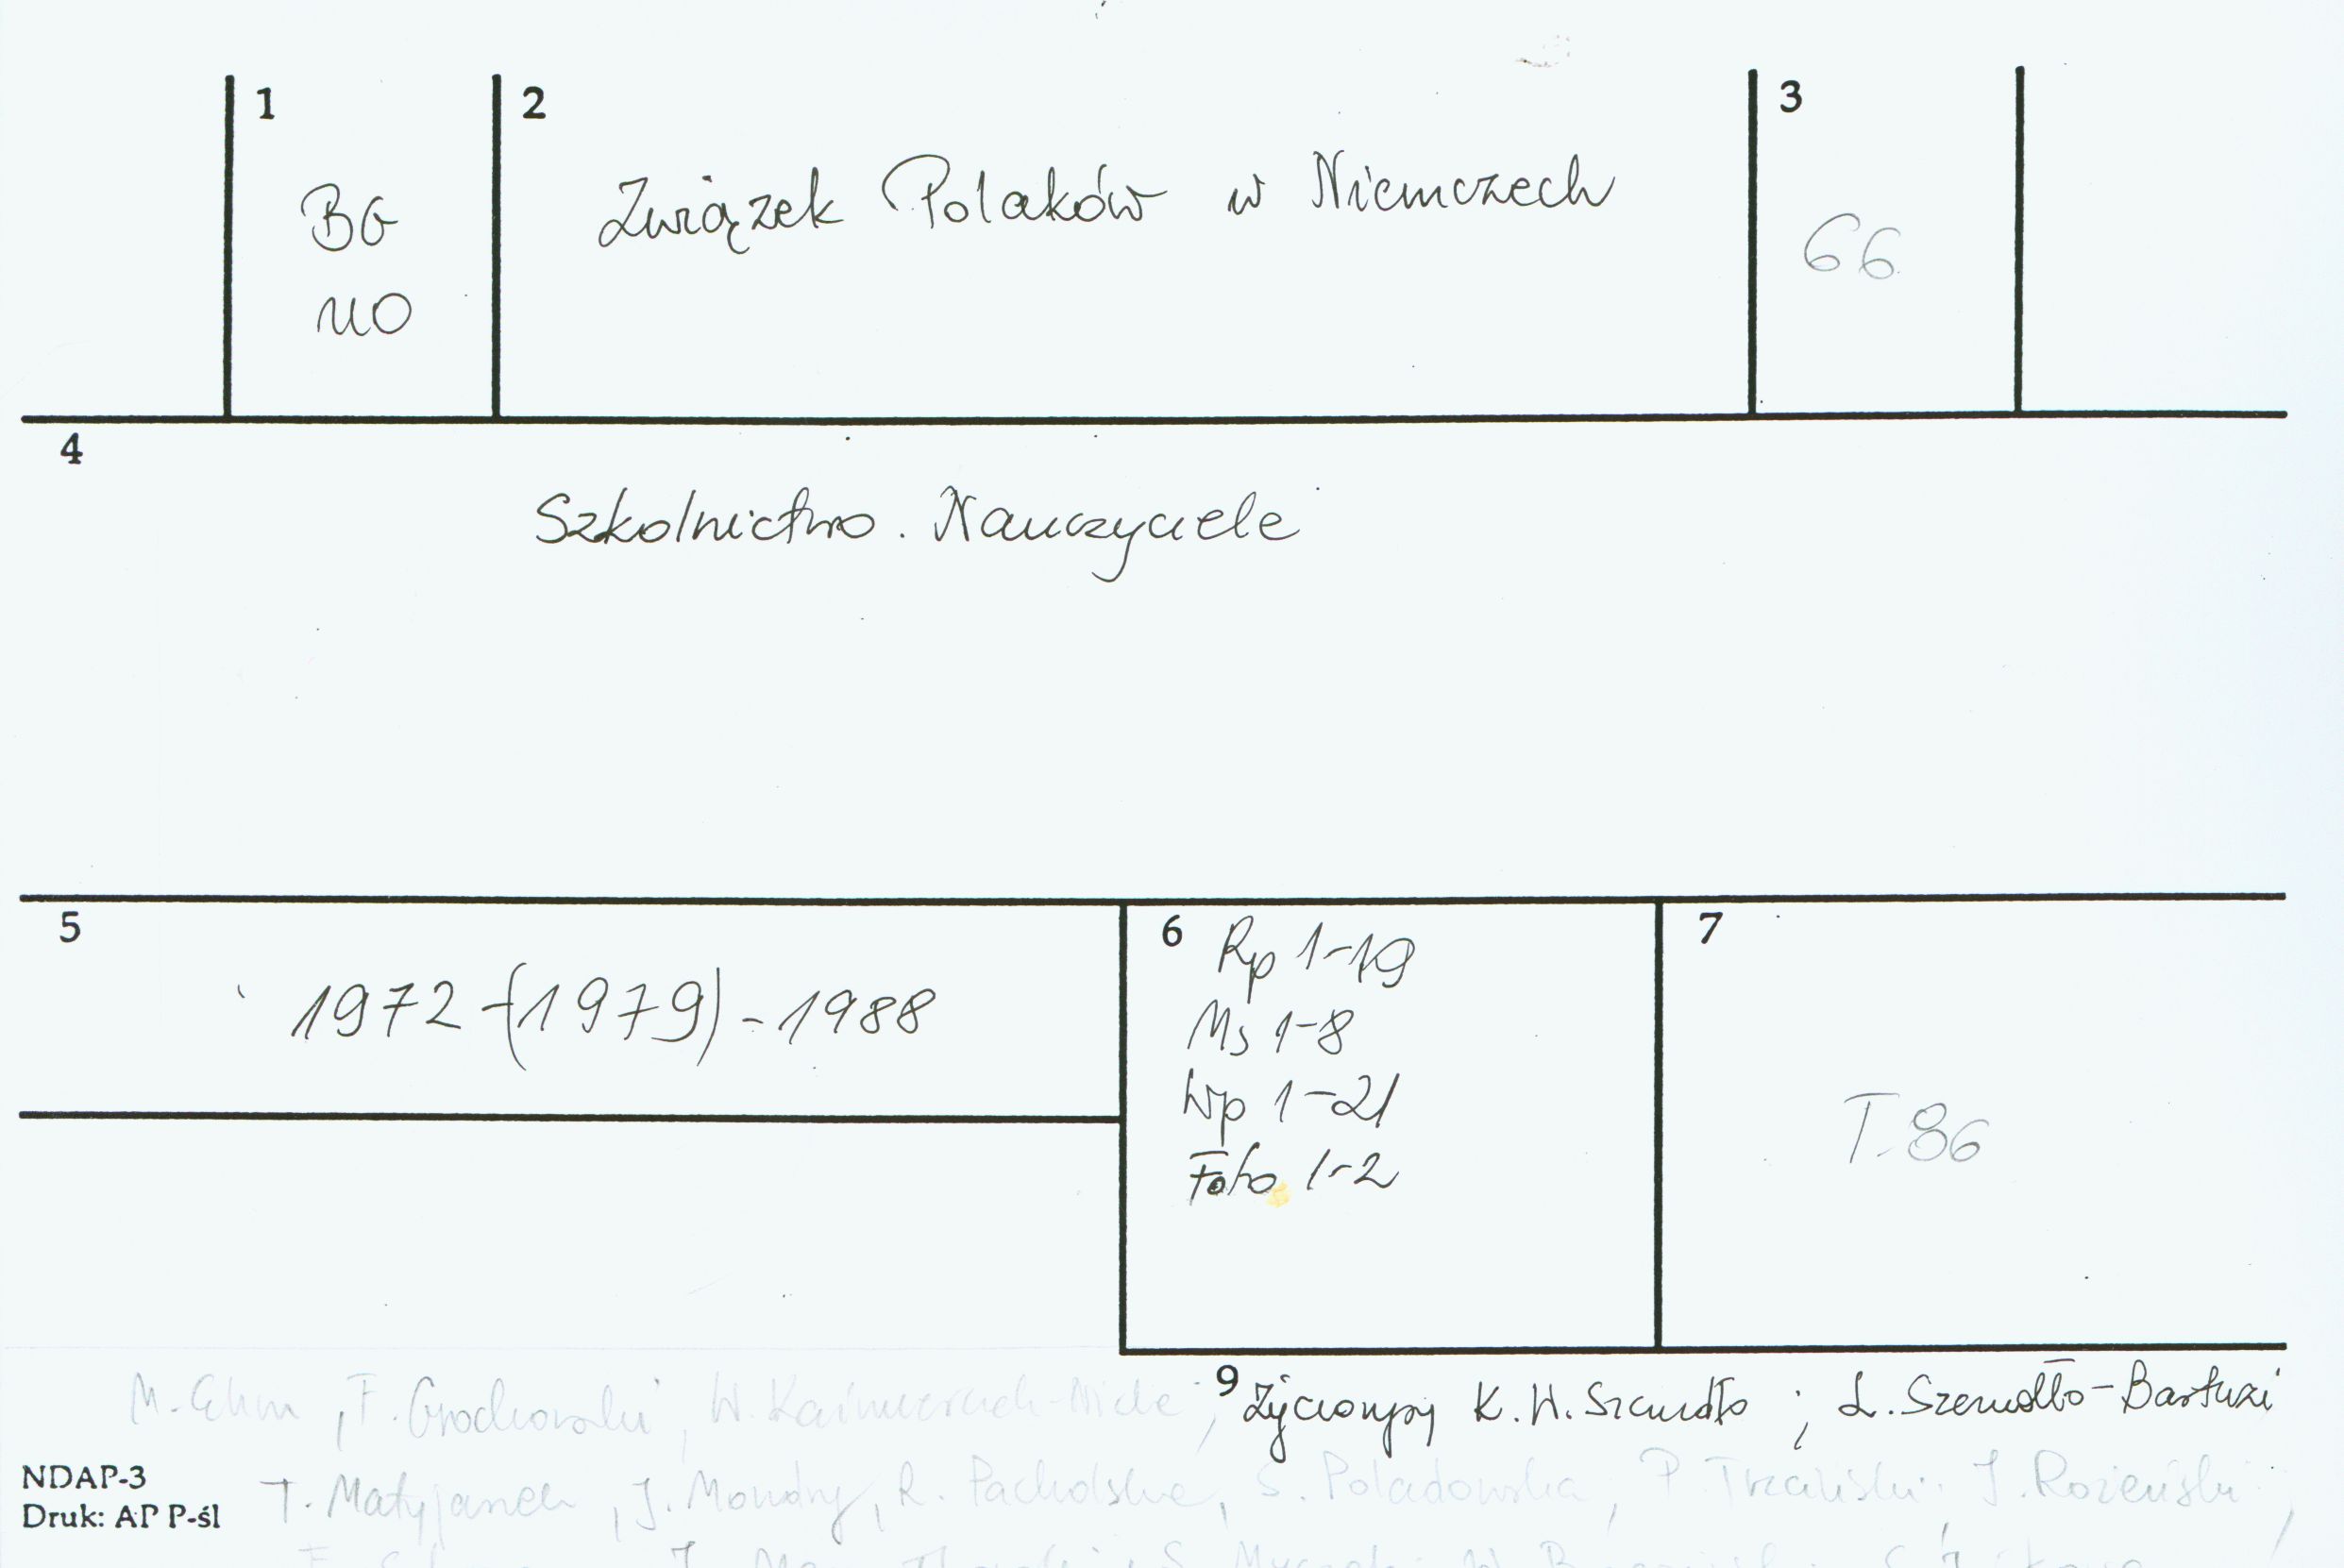 1 2 3
Związek Polaków w Niemczech
BG
UO
66
4
Szkolnictwo. Nauczyciele
5 6 7
Rp 1-19
1972-(1979)-1988
Ms 1-8
Wp 1-21
T.86
Foto 1-2
9 Życiorysy K.W. ; L. Szemdłło-Bartuzi
M. Ehm, F. Grochowski, W.
NDAP-3
T. Matyjanek, J. Mondry, R. Pacholska, S. Poladowska, P. Trzciński. J. Rozeński
Druk: AP P-śl